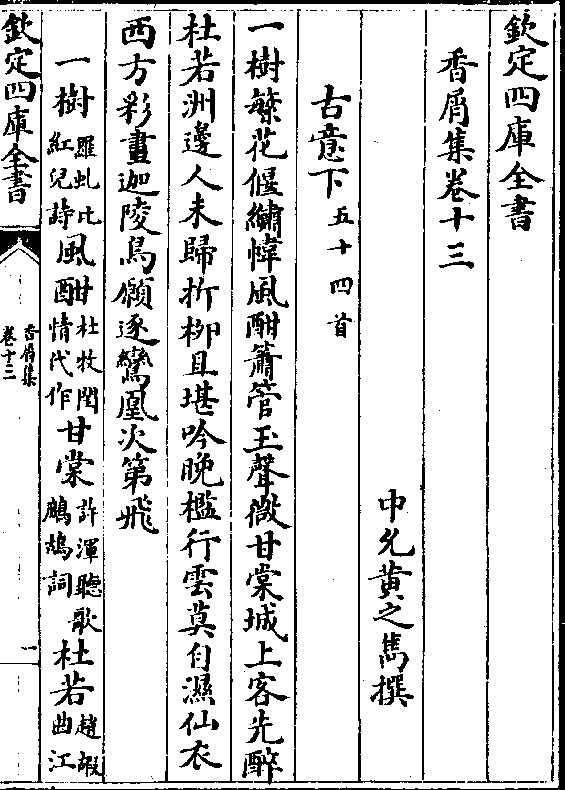 欽定四庫全書
香屑集卷十三
中允黃之雋撰
古意下五十四首
一樹繁花偃繡幃風酣簫管玉聲微甘棠城上客先醉
杜若洲邊人未歸折柳且堪吟晚檻行雲莫自濕仙衣
西方彩畫迦陵鳥願逐鸞凰次第飛
一樹羅虬比紅兒詩風酣杜牧閨情代作甘棠許渾聽歌鷓鴣詞杜若趙嘏曲江
欽定四庫全書
香屑集
卷十三
一